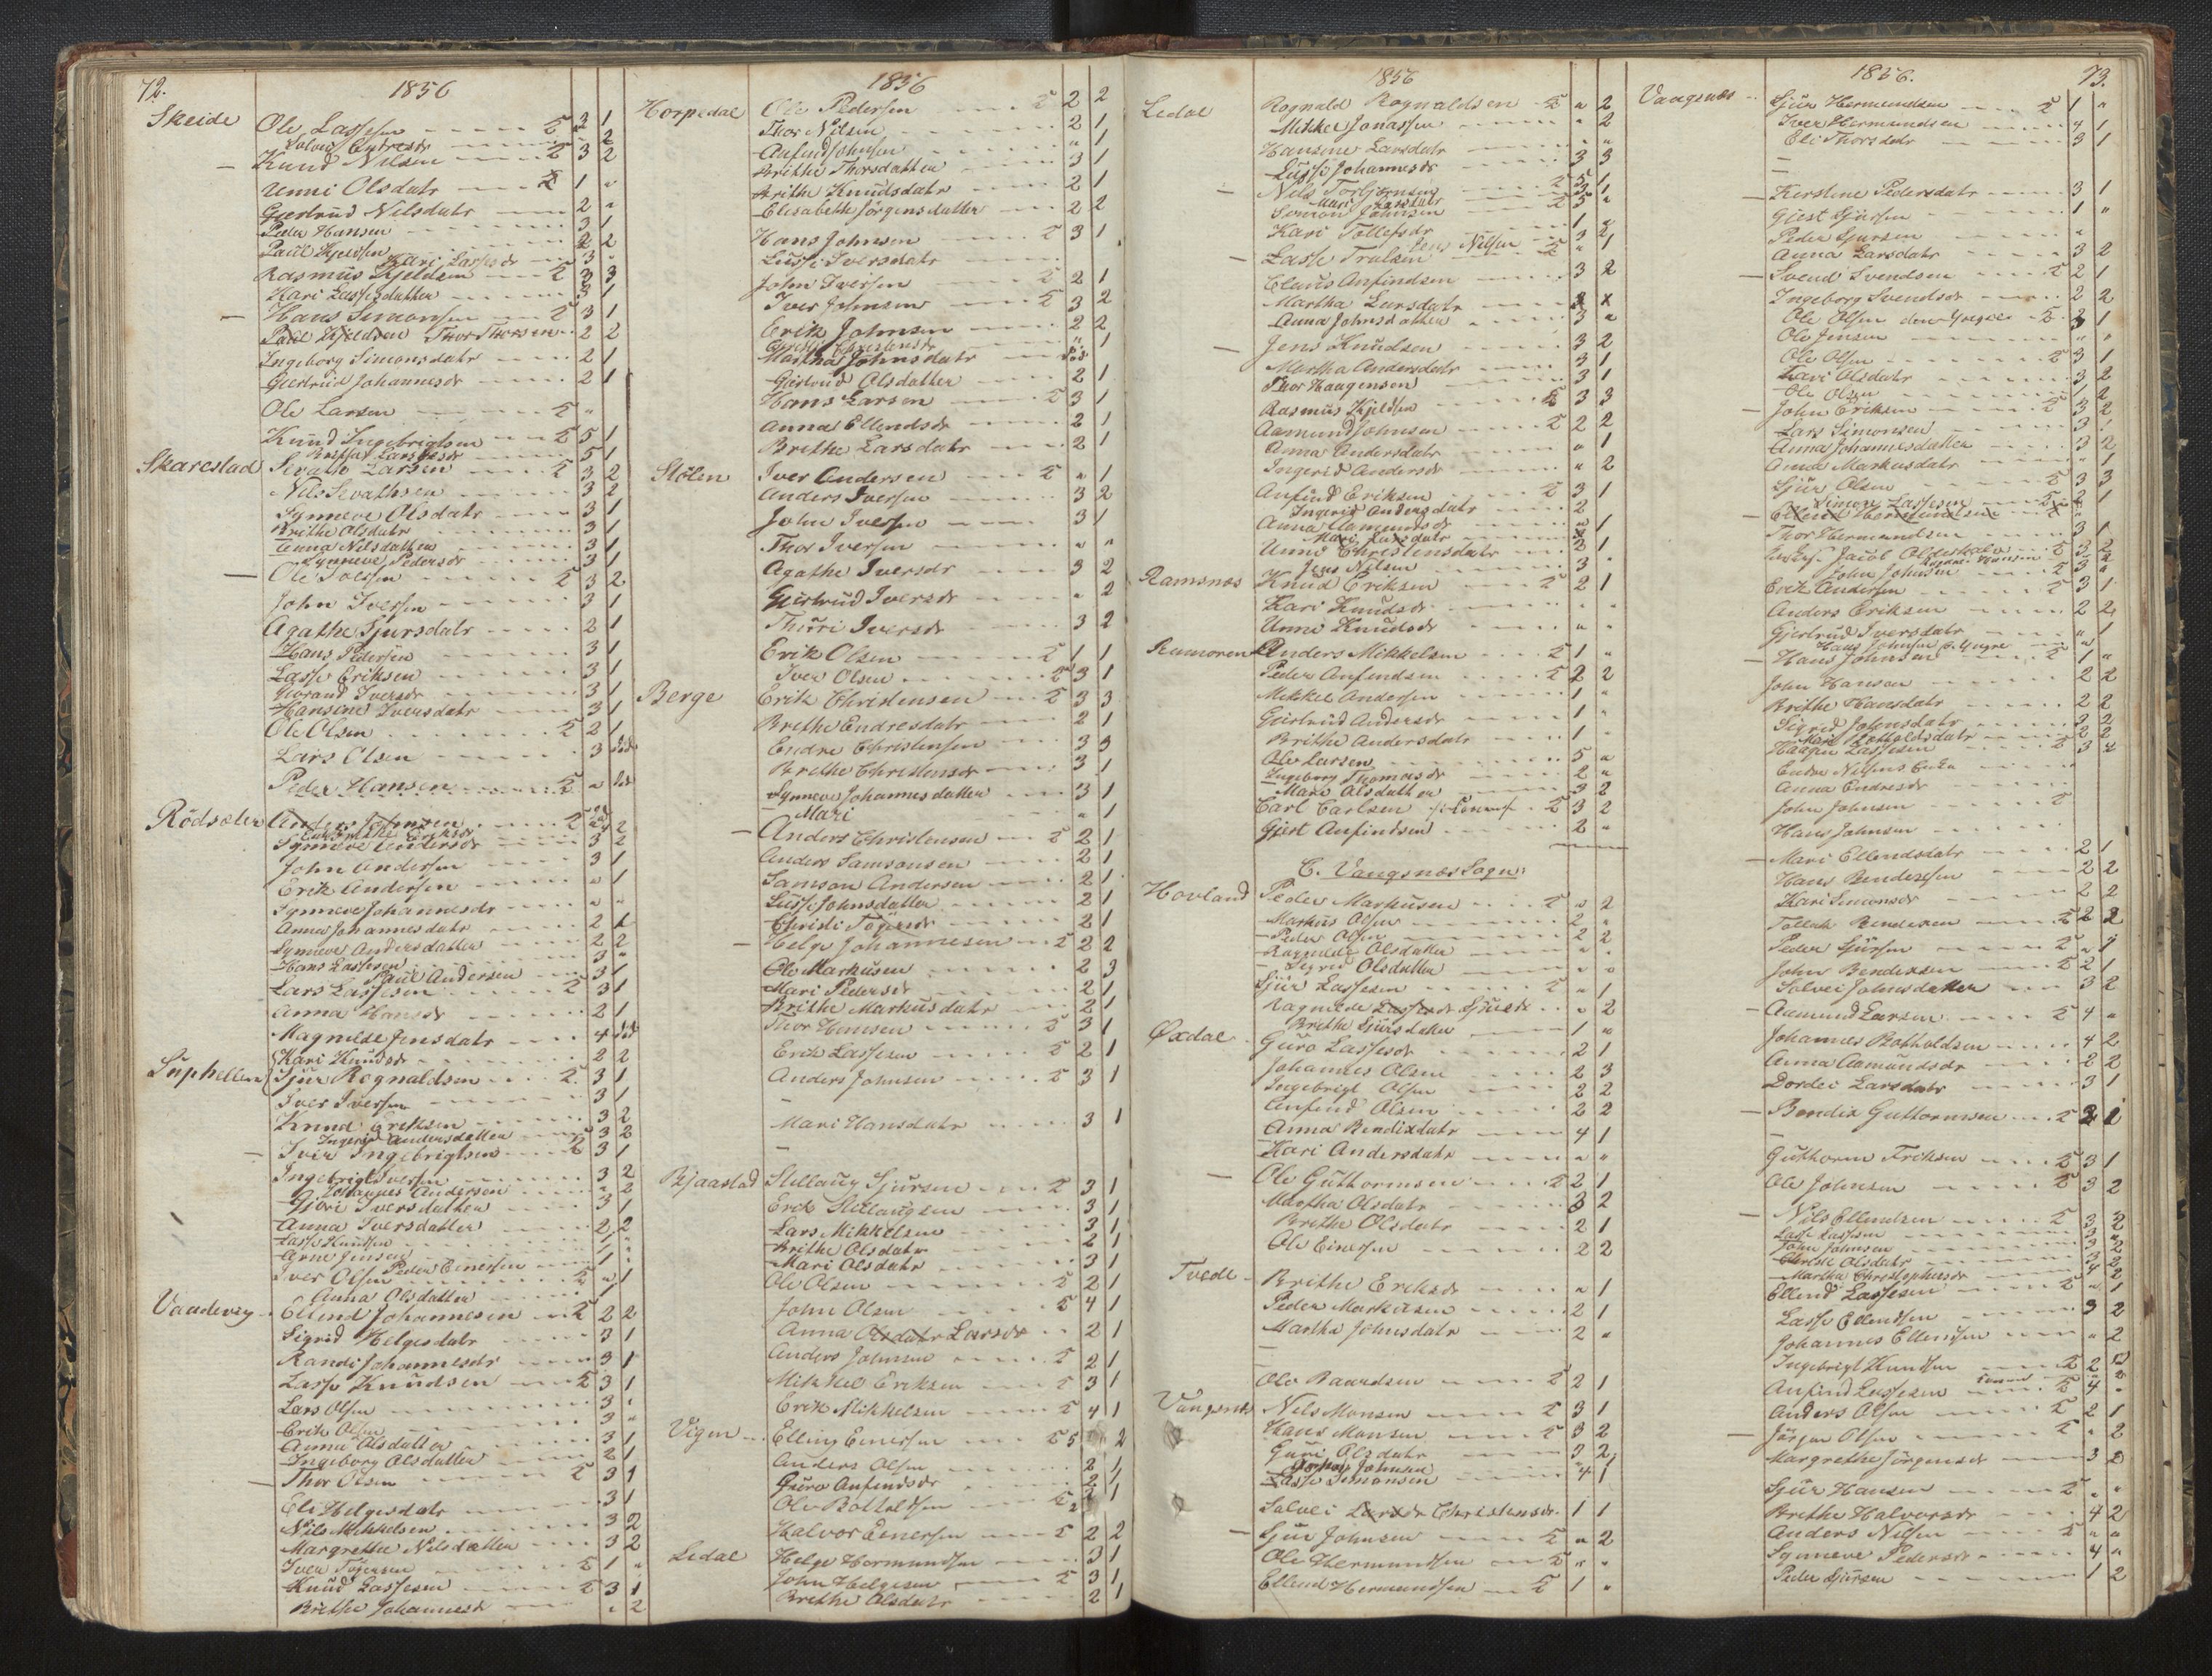 72.
1856
Skeide Ole Lassesen 2 1
Knud Nilsen 3 2
Unni Olsdatr 1 "
Giertrud Nilsdatr 2 "
Peder Hansen 3 1
Paul Kjeldsen 2 2
Kari Lassesdr 3
Rasmus Kjeldsen 3 3
Kari Lassesdatter 3 1
Hans Simonsen 3 1
Paul Kjeldsen Thor Thorsen 2 2
Ingeborg Simonsdatr 2 1
Giertrud Johannesdr 2 1
Ole Larsen "
Knud Ingebrigtsen 5 1
Larsesdr 5 1
Skarestad Sevath Larsen 3 2
Nils Sevathsen 3 2
Synneve Olsdatr 3 1
Brithe Olsdatr 3 1
Anna Nilsdatter 3 1
Synneve Pedersdr 3 1
Ole Iversen 3 2
John Iversen 3 1
Agathe Sjursdatr 2 1
Hans Pedersen 3 1
Lasse Eriksen 3 1
Iversdr 3 1
Hansine Iversdatr 3 1
Ole Olsen 2 1
Lars Olsen 3 död
Peder Hansen " död
Rødsæter Anders Johnsen
Synneve Andersdr 3 2
John Andersen 3 1
Erik Andersen " 1
Synneve Johannesdr " "
Anna Johannesdatr 2 1
Synneve Andersdatter 2 2
Hans Lassesen 3 "
Paul Andersen
Lars Lassesen 3 1
Anna Hansdr 2 1
Magnilde Jensdatr 4 död
Kari Knudsdr 2 2
Suphellen Sjur Rognaldsen 3 1
Iver Iversen 3 1
Knud Eriksen 3 2
Ingerid Andersdatter 3 2
Iver Ingebrigtsen 3 1
Ingebrigt Iversen 3 2
Johannes Andersen " 2
Gjøri Iversdatter 3 1
Anna Iversdatter 2 2
Lasse Knudsen 1 "
Arne Jensen 1 "
Peder Einersen 1
Iver Olsen " 1
Anna Olsdatter 1
Vaadevig Ellend Johannesen 2 2
Sigrid Helgesdatr 3 1
Randi Johannesdr 3 1
Lasse Knudsen 3 1
Lars Olsen 3 "
Erik Olsen 3 "
Anna Olsdatter 3 1
Ingeborg Olsdatter 2 1
Thor Olsen 3 1
Eli Helgesdatr 3 1
Nils Mikkelsen 3 2
Margrethe Nilsdatter 3 2
Iver 1 "
Knud Lassesen 3 1
Brithe Johannesdr " 2
1856
Horpedal Ole Pedersen 2 2
Thor Nilsen 2 1
Anfind Johnsen " 1
Brithe Thorsdatter 3 1
Brithe Knudsdatr 2 1
Elisabethe Jörgensdatter 2 2
Hans Johnsen 3 1
Lussi Iversdatr
John Iversen 2 1
Iver Johnsen 3 2
Erik Johnsen 2 2
Christensdr " 1
Martha Johnsdatr död
Giertrud Olsdatter 2 1
Hans Larsen 3 1
Anna Ellendsdr 2 1
Brithe Larsdatr 2 1
Stølen Iver Andersen " 1
Anders Iversen 3 2
John Iversen 3 1
Thor Iversen " "
Agathe Iversdr 3 2
Giertrud Iversdr " 2
Thurri Iversdr 3 2
Erik Olsen 1 1
Iver Olsen 3 1
Berge Erik Christensen 3 3
Brithe Endresdatr 2 1
Endre Christensen 3 3
Brithe Christensdr 3 1
Synneve Johannesdatter 3 1
Mari " 1
Anders Christensen 2 1
Anders Samsonsen 2 1
Samson Andersen 2 1
Lussi Johnsdatter 2 1
Christi 2 1
Helge Johannesen 2 2
Ole Markusen 2 3
Mari Pedersdr 2 1
Brithe Markusdatr 2 1
Thor Hansen 3 1
Erik Lassesen 2 1
Anders Johnsen 3 1
Mari Hansdatr 3 1
Bjaastad Stellaug Sjursen 3 1
Erik Stellaugsen 3 1
Lars Mikkelsen 3 1
Brithe Olsdatr 2 1
Mari Olsdatr 3 1
Ole Olsen 2 1
John Olsen 4 1
Anna Olsdatr Larsdr 2 1
Anders Johnsen 2 1
Mikkel Eriksen 3 1
Erik Mikkelsen 4 1
Vigen Elling Einersen 5 2
Anders Olsen 2 1
Guro Anfindsdr 2 1
Ole Botholdsen 2
Halvor Einersen 2 2
Ledal Helge Hermundsen 3 1
John Helgesen 3 1
Brithe Olsdatr 2 1
1856
Ledal Rognald Rognaldsen " 2
Mikkel Jonassen " 2
Hansine Larsdatr " "
Lussi Johannesdr 3 3
Nils Torbjørnsen 5 1
Mari Larsdatr 3 1
Simon Johnsen 5 "
Kari Tollefsdr 1 "
Jens Nilsen 3 2
Lasse Trulsen " 1
Claus Anfindsen 3 2
Martha Larsdatr
Anna Johnsdatter 3 "
Jens Knudsen 3 2
Martha Andersdatr 3 1
Thor Haagensen 3 1
Rasmus Kjeldsen 3 3
Aamund Johnsen 2 2
Anna Andersdatr " 1
Ingerid Andersdr " 2
Anfind Eriksen 3 1
Ingerid Andersdatr 2
Anna Aamundsdr " 1
Mari Larsdatr
Unni Christensdatr 2 1
Jens Nilsen 3 "
Ramsnæs Knud Eriksen 2 1
Kari Knudsdr " "
Unni Knudsdr " "
Rumoren Anders Mikkelsen 1 "
Peder Anfindsen 2 2
Mikkel Andersen 1 "
Giertrud Andersdr 1 "
Brithe Andersdatr 1 "
Ole Larsen 5 "
Ingeborg Thomasdr 2 "
Mari Olsdatter 3 2
Carl Carlsen 3 2
Gjest Anfindsen 2 "
C. Vangsnæs Sogn:
Hovland Peder Markusen " 2
Markus Olsen 2 "
Peder Olsen 2 2
Ragnilde Olsdatter " "
Sigrid Olsdatter " "
Sjur Lassesen " 1
Ragnilde Lassesdr Sjursdr " 2
Brithe Sjursdatter 1 "
Øxdal Guro Lassesdr 2 1
Johannes Olsen 2 3
Ingebrigt Olsen 2 2
Anfind Olsen 2 2
Anna Bendixdatr 4 1
Kari Andersdatr " "
Ole Guthormsen 2 1
Martha Olsdatr 3 2
Brithe Olsdatr 2 1
Ole Einersen 2 2
Tvede Brithe Eriksdr " 1
Peder Markusen 2 1
Martha Johnsdatr 2 "
Ole Baardsen 2 1
Vangsnæs Nils Monsen 3 1
Hans Monsen 3 2
Guri Olsdatr 3 2
Johnsen "
Lasse Simonsen 4 1
Salvei Larsdr Christensdr 1 1
Sjur Johnsen " 2
Ole Hermundsen " "
Ellend Hermundsen 1 "
1856.
73.
Vangsnæs Sjur Hermundsen 1 "
Iver Hermundsen 4 1
Eli Thorsdatr 3 1
Kirstine Pedersdatr 3 1
Gjest Sjursen 1 "
Peder Sjursen "
Anna Larsdatr 3 2
Svend Svendsen 2 1
Ingeborg Svendsdr 2 2
Ole Olsen den Yngre 3 1
Ole Jensen " "
Ole Olsen 3 1
Kari Olsdatr 3 2
Ole Olsen 1 2
John Eriksen 3 2
Lars Simonsen 3 1
Anna Johannesdatter 3 2
Anna Markusdatr " 1
Sjur Olsen 3 3
Simon Lassesen 2 1
Ellend Hermundsen
Thor Hermundsen 3 1
Jacob 3 2
John Johnsen 3 "
Erik Andersen 3 1
Anders Eriksen 2 2
Gjertrud Iversdatr " 1
Hans Johnsen d. Yngre "
Hans Johnsen 1 "
John Hansen 2 2
Brithe Hansdatr 2 2
Sigrid Johnsdatr 3 2
Mari Botholdsdatr 2 2
Haagen Lassesen 3
Endre Nilsens Enke "
Anna Endresdr "
John Johnsen
Hans Johnsen
Mari Ellendsdatr 2 1
Hans Bendixsen 2 2
Kari Simonsdr 2 2
Tollak Bendixen 2 2
Peder Sjursen " 1
John Bendixsen 2 1
Salvei Johnsdatter 3 2
Aamund Larsen 4 "
Johannes Botholdsen 4 2
Anna Aamundsdr 2 2
Dordei Larsdatr 3 1
Bendix Guttormsen 2 1
Guthorm Eriksen 3 1
Ole Johnsen 3 2
Nils Ellendsen 3 2
Lasse Lassesen 3 "
John Johnsen 3 2
Christi Olsdatr 3 2
Martha Christophersdr 4 2
Ellend Lassesen " 1
Lasse Ellendsen 3 2
Johannes Ellendsen " 2
Ingebrigt Knudsen 2 2
Anfind Lassesen 4 "
Anders Olsen 2 1
Jörgen Olsen " 2
Margrethe Jörgensdr 3 2
Sjur Hansen " "
Brithe Halvorsdr 4 2
Anders Nilsen " "
Synneve Pedersdr 4 "
Peder Sjursen 1 2